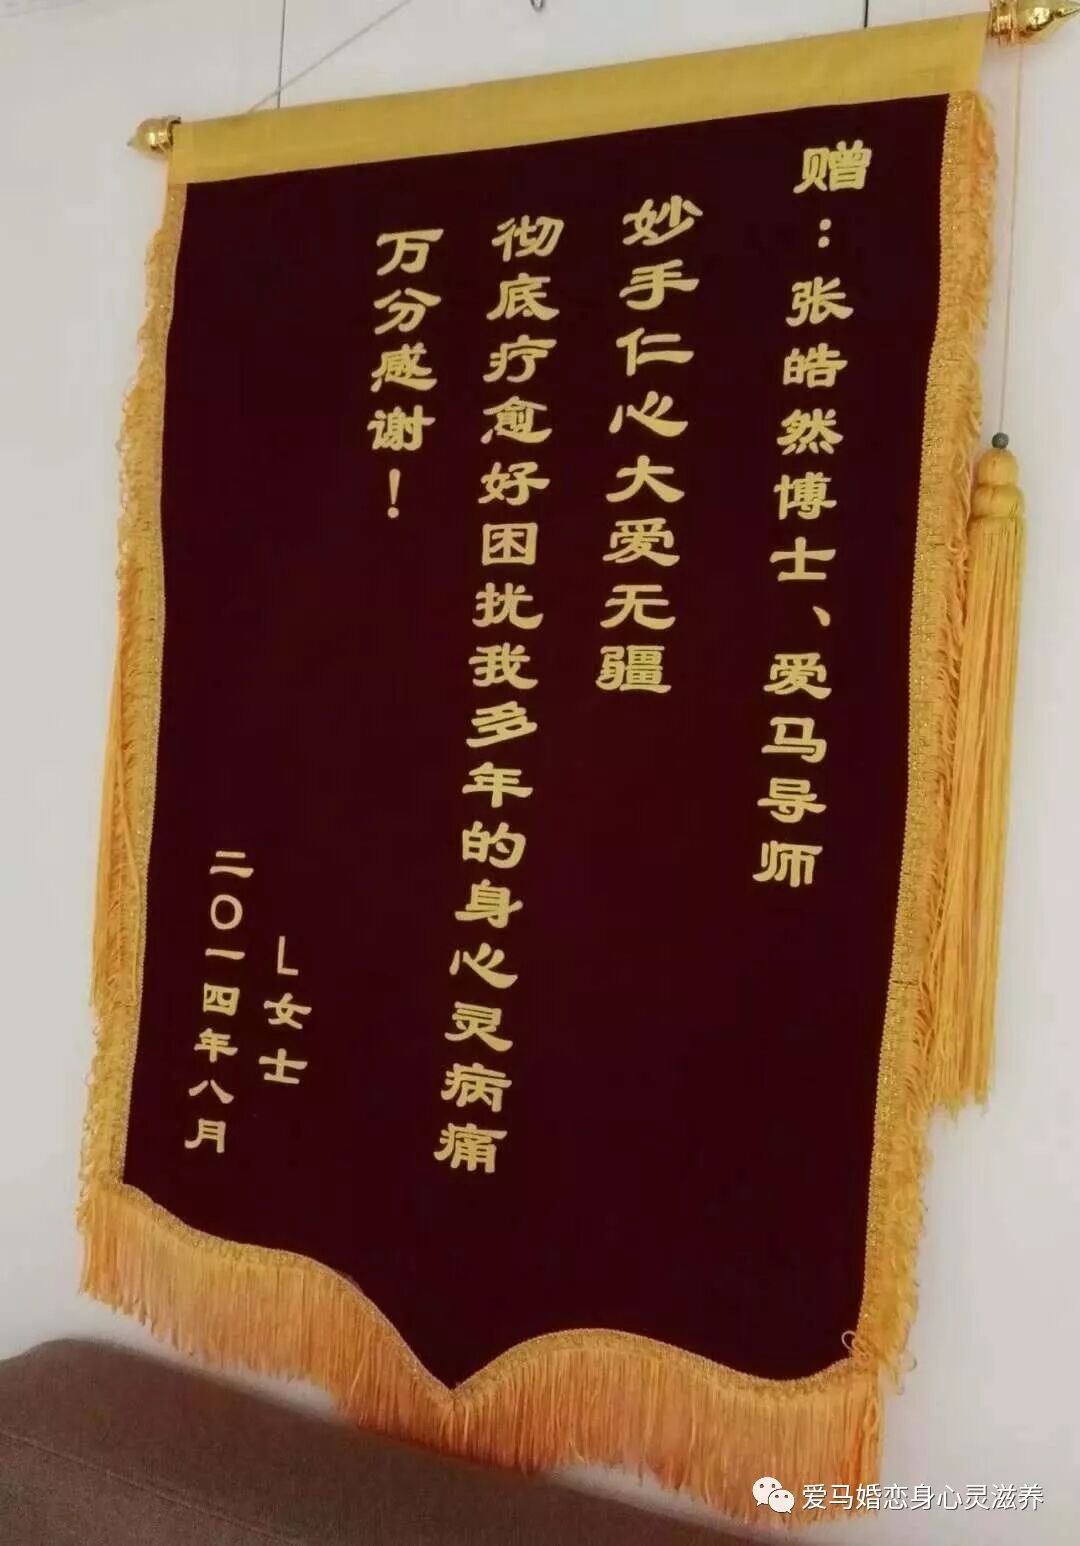 赠：张皓然博士、爱马导师
妙手仁心大爱无疆
彻底疗愈好困扰我多年的身心灵病痛
万分感谢！
L女士
二〇一四年八月
爱马婚恋身心灵滋养